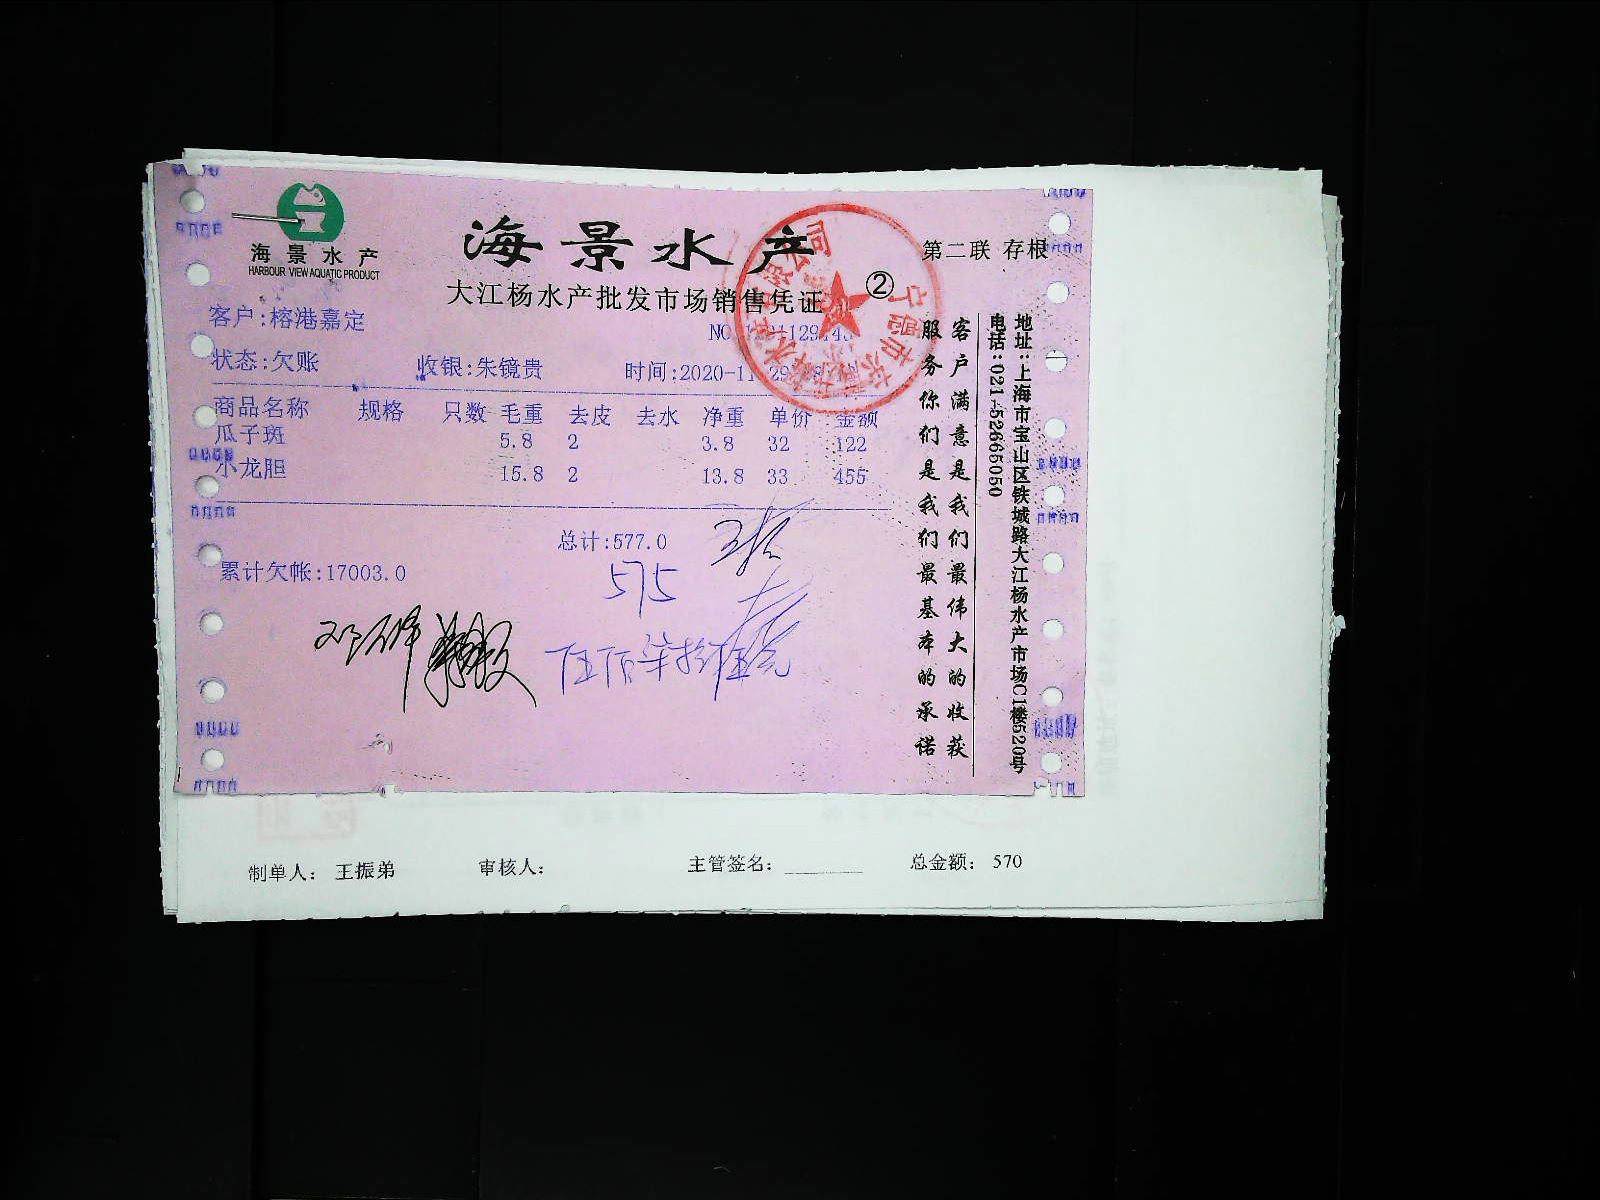 海景水产
HARBOUR VIEW AQUATIC PRODUCT
海景水产
大江杨水产批发市场销售凭证
②
第二联 存根
客户:榕港嘉定
NO
状态:欠账 收银:朱镜贵 时间:2020-11-29
商品名称 规格 只数 毛重 去皮 去水 净重 单价 金额
瓜子斑 5.8 2 3.8 32 122
小龙胆 15.8 2 13.8 33 455
总计:577.0
累计欠帐:17003.0
575
伍佰柒拾伍元
客户满意是我们最伟大的收获
服务你们是我们最基本的承诺
地址:上海市宝山区铁城路大江杨水产市场C1楼520号
电话:021-52665050
制单人: 王振弟 审核人: 主管签名: 总金额: 570